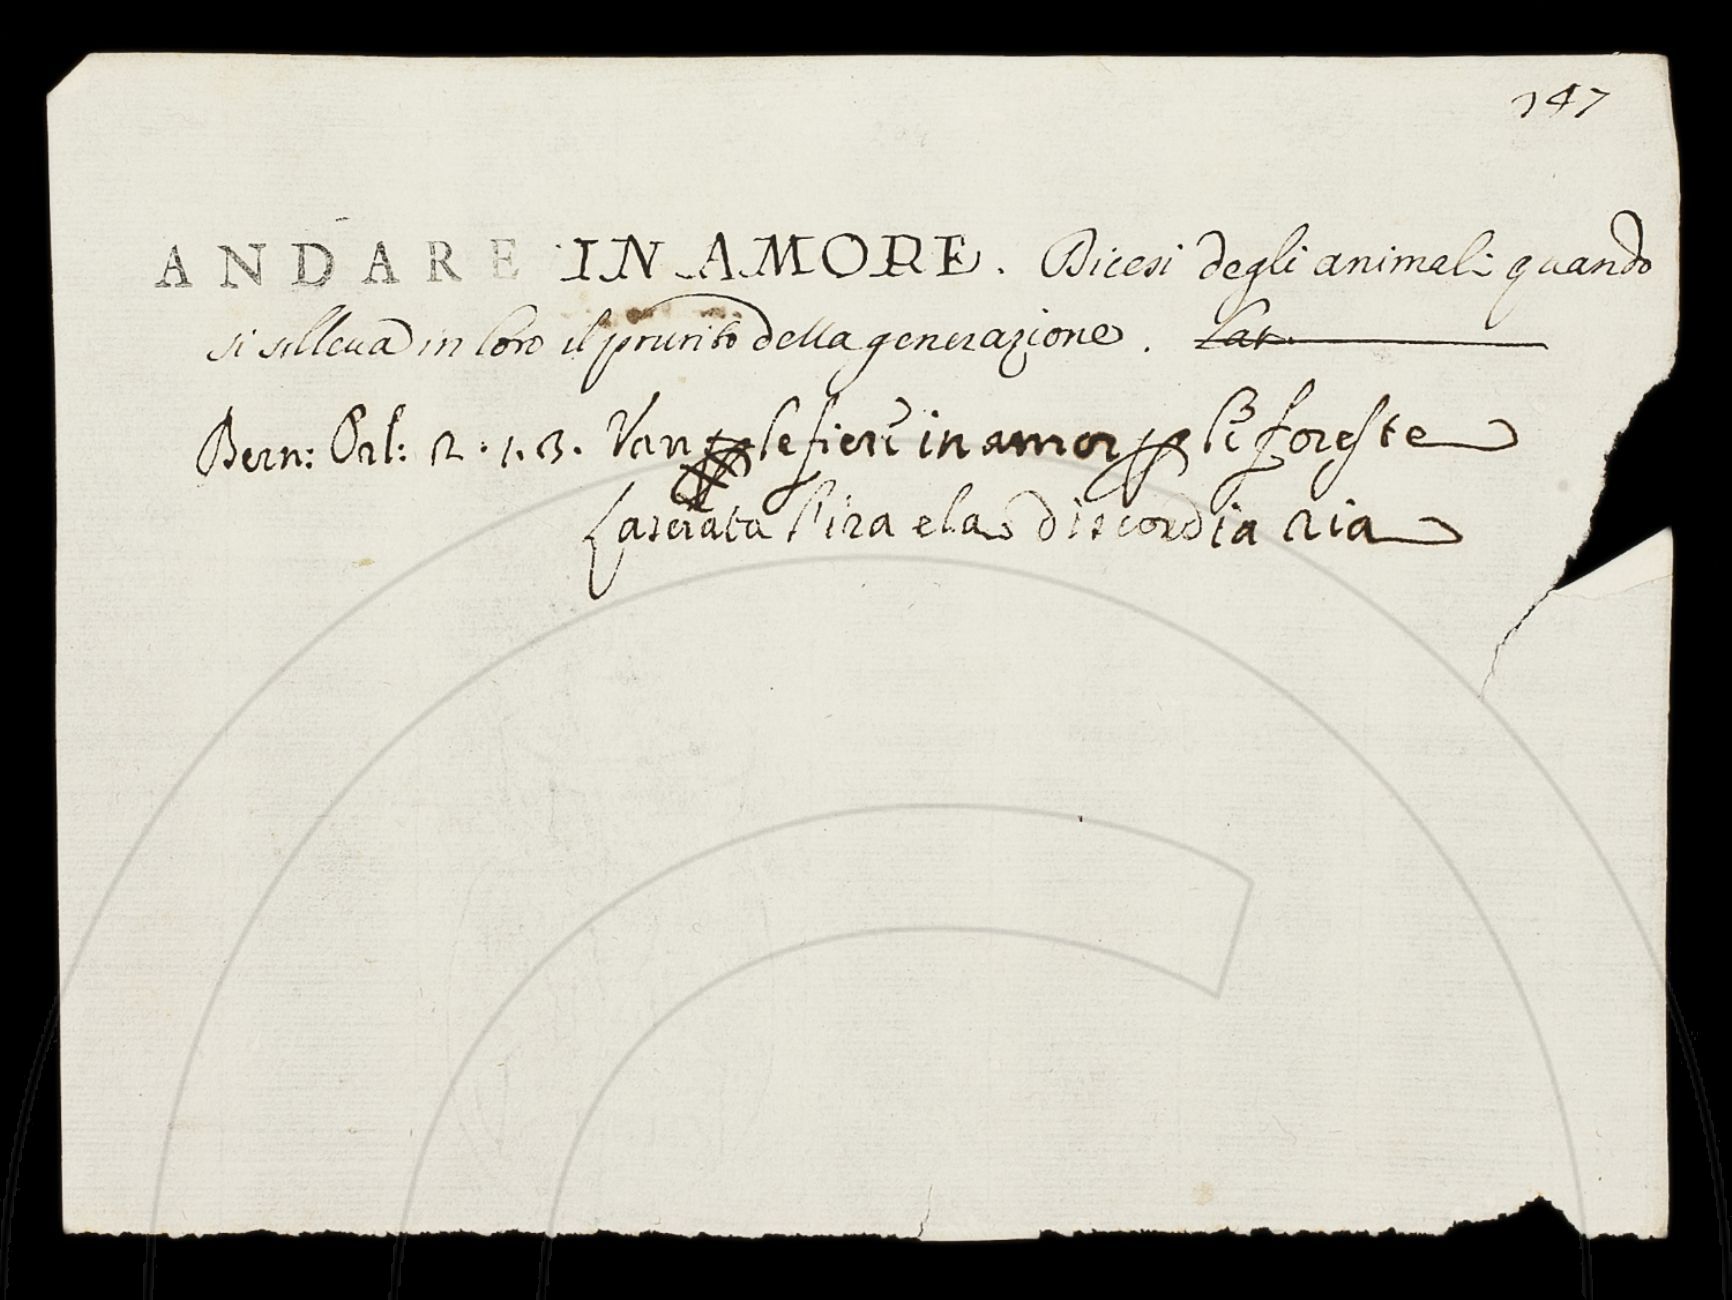 147
ANDARE IN AMORE. Dicesi degli animali quando
si solleua in loro il prurito della generazione. Lat.
Bern: Orl: 2. 1. 3. Van le fiere in amor p le foreste
Lasciata l'ira e la discordia ria